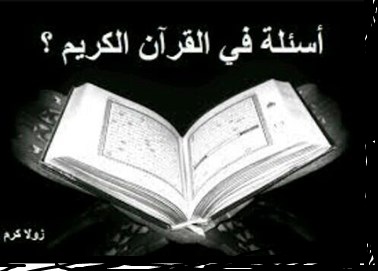 أسئلة في القرآن الكريم ؟
زولا كرم